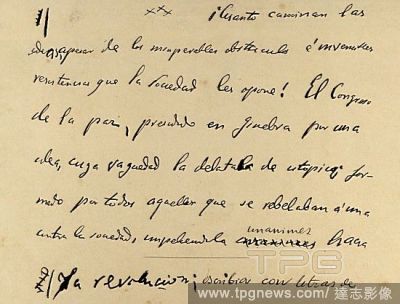 1| xxx ¡Cuanto caminan las
ideas, a pesar de los insuperables obstaculos é invencibles
resistencias que la sociedad les opone! El Congreso
de la paz, presidido en Ginebra por una
idea, cuya vaguedad la delataba de utopica, for-
mado por todos aquellos que se rebelaban á una
contra la sociedad, unanimes haga
2| La revolucion; escribir con letras de
TPG
www.tpgnews.com/達志影像